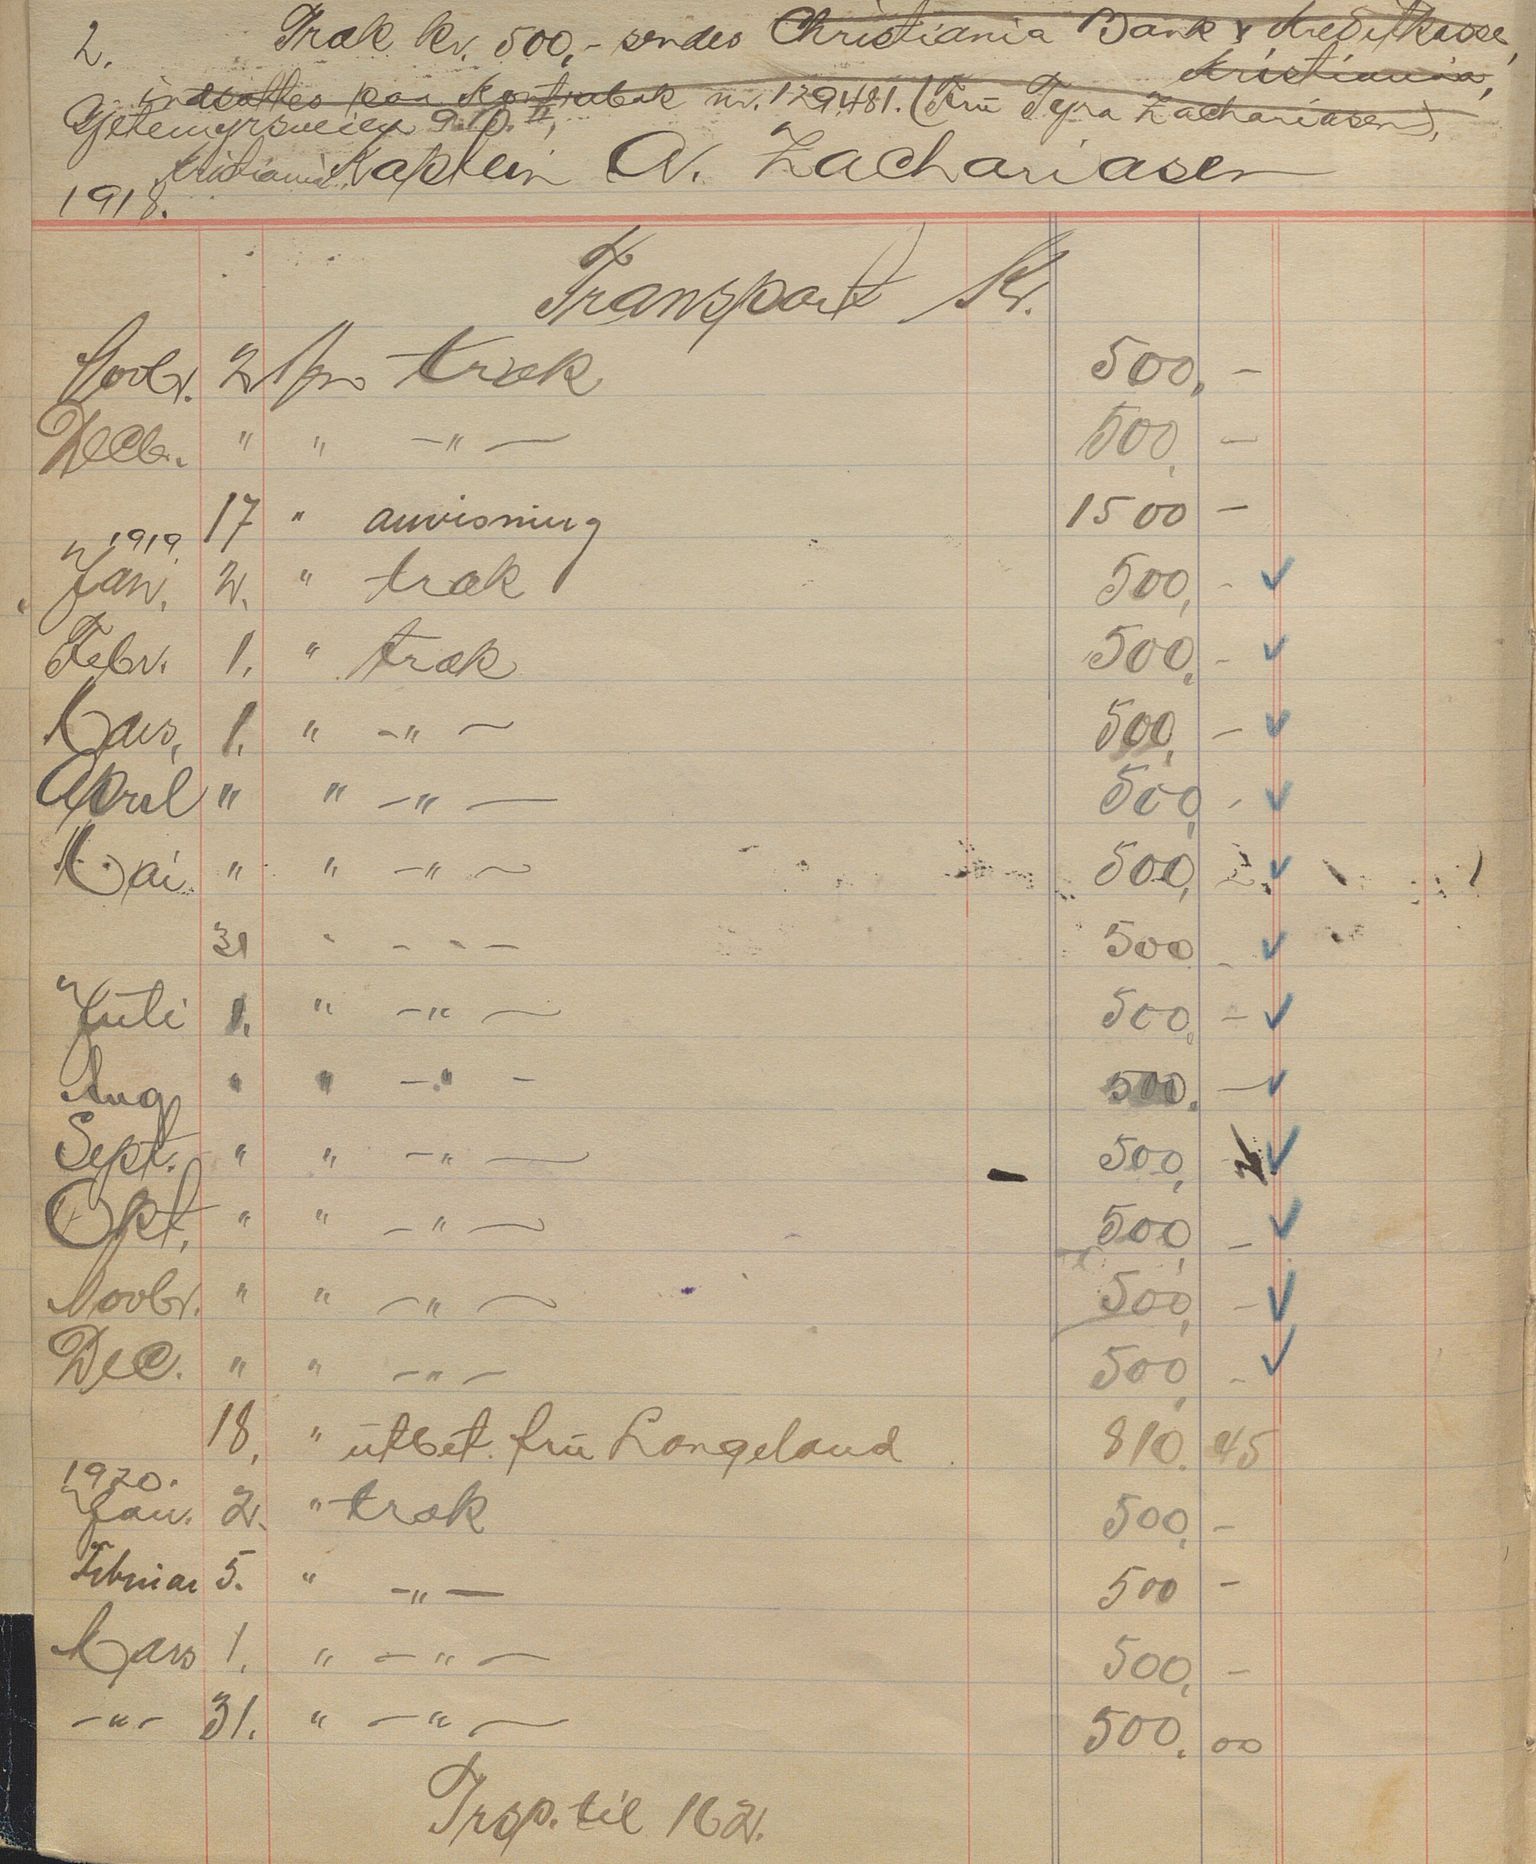 2. Træk kr. 500,- sendes Christiania Bank & Kreditkasse,
Kristiania,
indsættes paa Kontrabok nr. 129481. (Fru Tyra Zachariasen),
Gjetemyrsveien
Kristiania. Kaptein A. Zachariasen
1918.
Transport Kr.
Novbr. 2 pr træk 500, -
Decbr. " " -"- 500, -
17 " anvisning 1500 -
1919
Jan. 2. " træk 500, - ✓
Febr. 1. " træk 500, - ✓
Mars, 1. " -"- 500, - ✓
April " " -"- 500, - ✓
Mai " " -"- 500, - ✓
31 " -"- 500 - ✓
Juli 1. " -"- 500, - ✓
Aug " " -"- 500. - ✓
Sept. " " -"- 500, - ✓
Okt. " " -"- 500, - ✓
Novbr. " " -"- 500, - ✓
Dec. " " -"- 500, - ✓
18. " utbet. fru Langeland 810. 45
1920.
Jan. 2. " træk 500, -
Februar 5. " -"- 500 -
Mars 1. " -"- 500, -
-"- 31. " -"- 500. 00
Trsp. til 162.